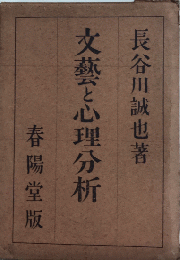 長谷川誠也著
文藝と心理分析
春陽堂版